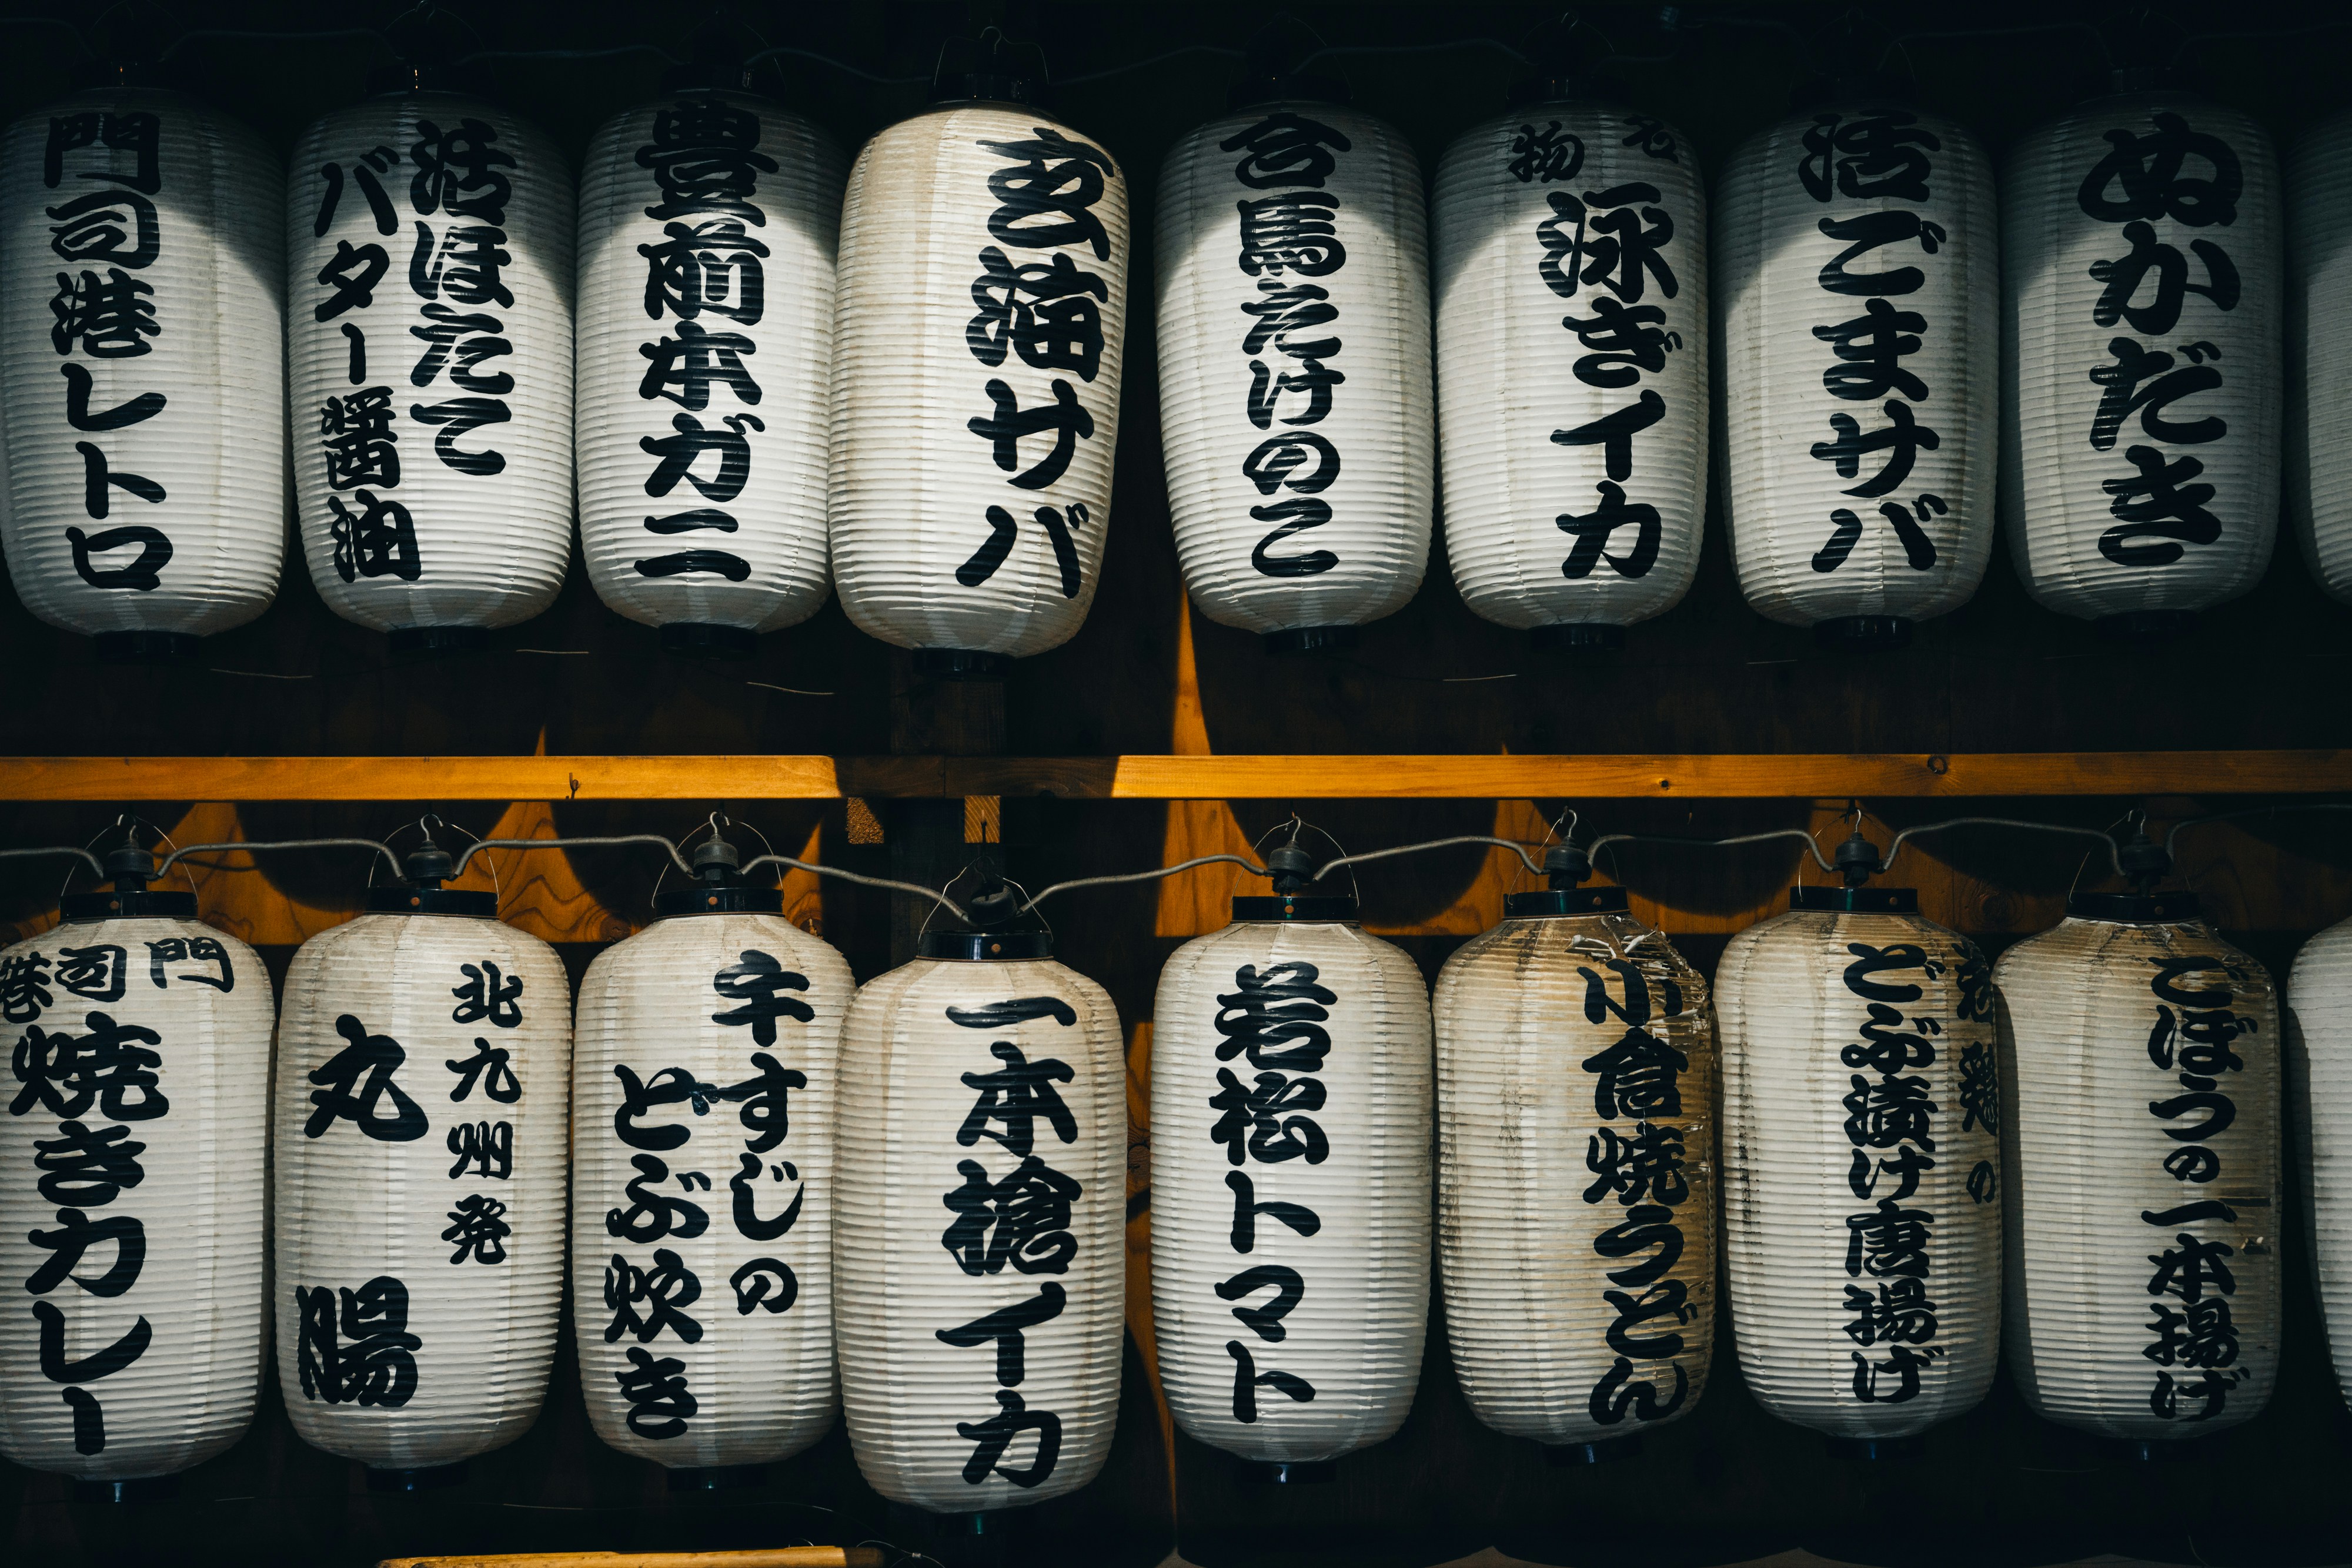 門司港レトロ
活ほたて
バター醤油
豊前本ガニ
玄海サバ
合馬たけのこ
名物
泳ぎイカ
活ごまサバ
ぬかだき
門司港
焼きカレー
北九州発
丸腸
牛すじの
どぶ炊き
一本槍イカ
若松トマト
小倉焼うどん
どぶ漬け唐揚げ
ごぼうの一本揚げ